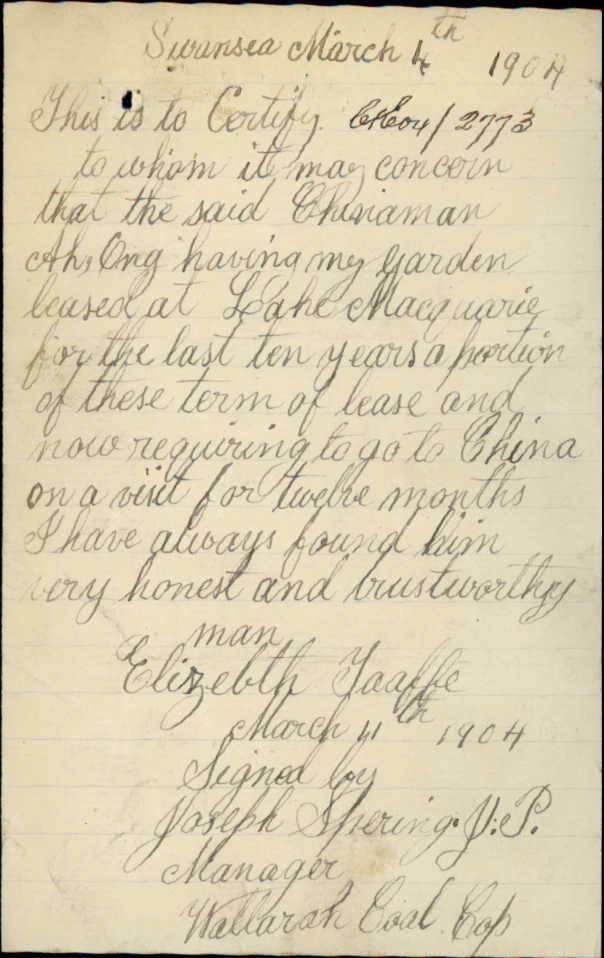 Swansea March 4th 1904
This is to Certify. C/E04/2773
to whom it may concern
that the said Chinaman
Ah, Ong having my garden
leased at Lake Macquarie
for the last ten years a portion
of these term of lease and
now requiring to go to China
on a visit for twelve months
I have always found him
very honest and trustworthy
man
Elizebth Taaffe
March 11th 1904
Signed by
Joseph Spering. J.P.
Manager
Wallarah Coal Cop